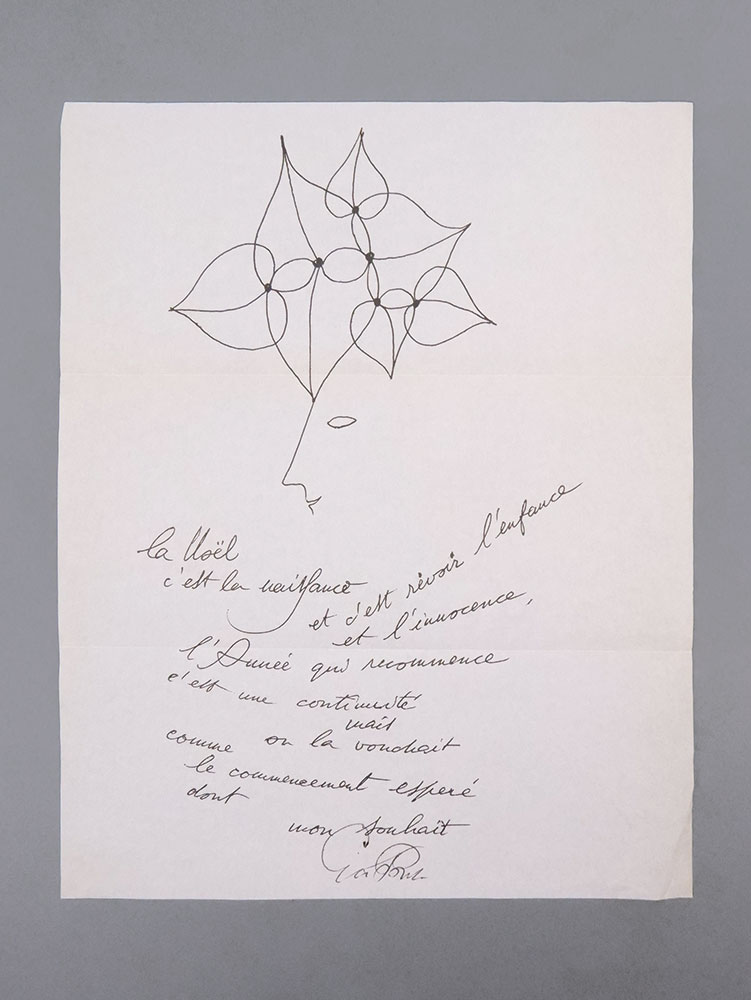 la Noël
c'est la naissance
et c'est revoir l'enfance
et l'innocence,
l'Année qui recommence
c'est une continuité
mais
comme on la voudrait
le commencement esperé
dont
mon souhait
Gio Ponti